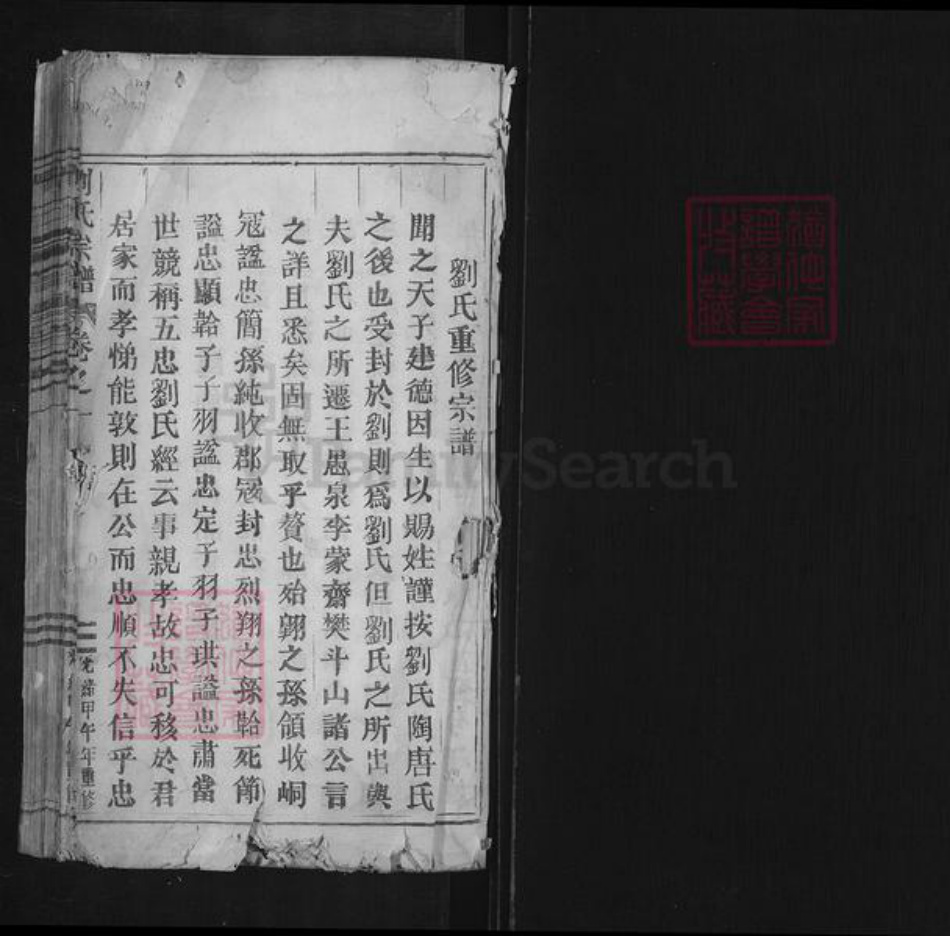 劉氏重修宗譜
聞之天子建德因生以賜姓謹按劉氏陶唐氏
之後也受封於劉則爲劉氏但劉氏之所出與
夫劉氏之所遷王愚泉李蒙齋樊斗山諸公言
之詳且悉矣固無取乎贅也始翶之孫領收峒
冦諡忠簡孫純收郡冦封忠烈翔之孫韐死節
諡忠顯韐子子羽諡忠定子羽子珙諡忠肅當
世競稱五忠劉氏經云事親孝故忠可移於君
居家而孝悌能敦則在公而忠順不失信乎忠
劉氏宗譜 卷之一
光緒甲午年重修
FamilySearch